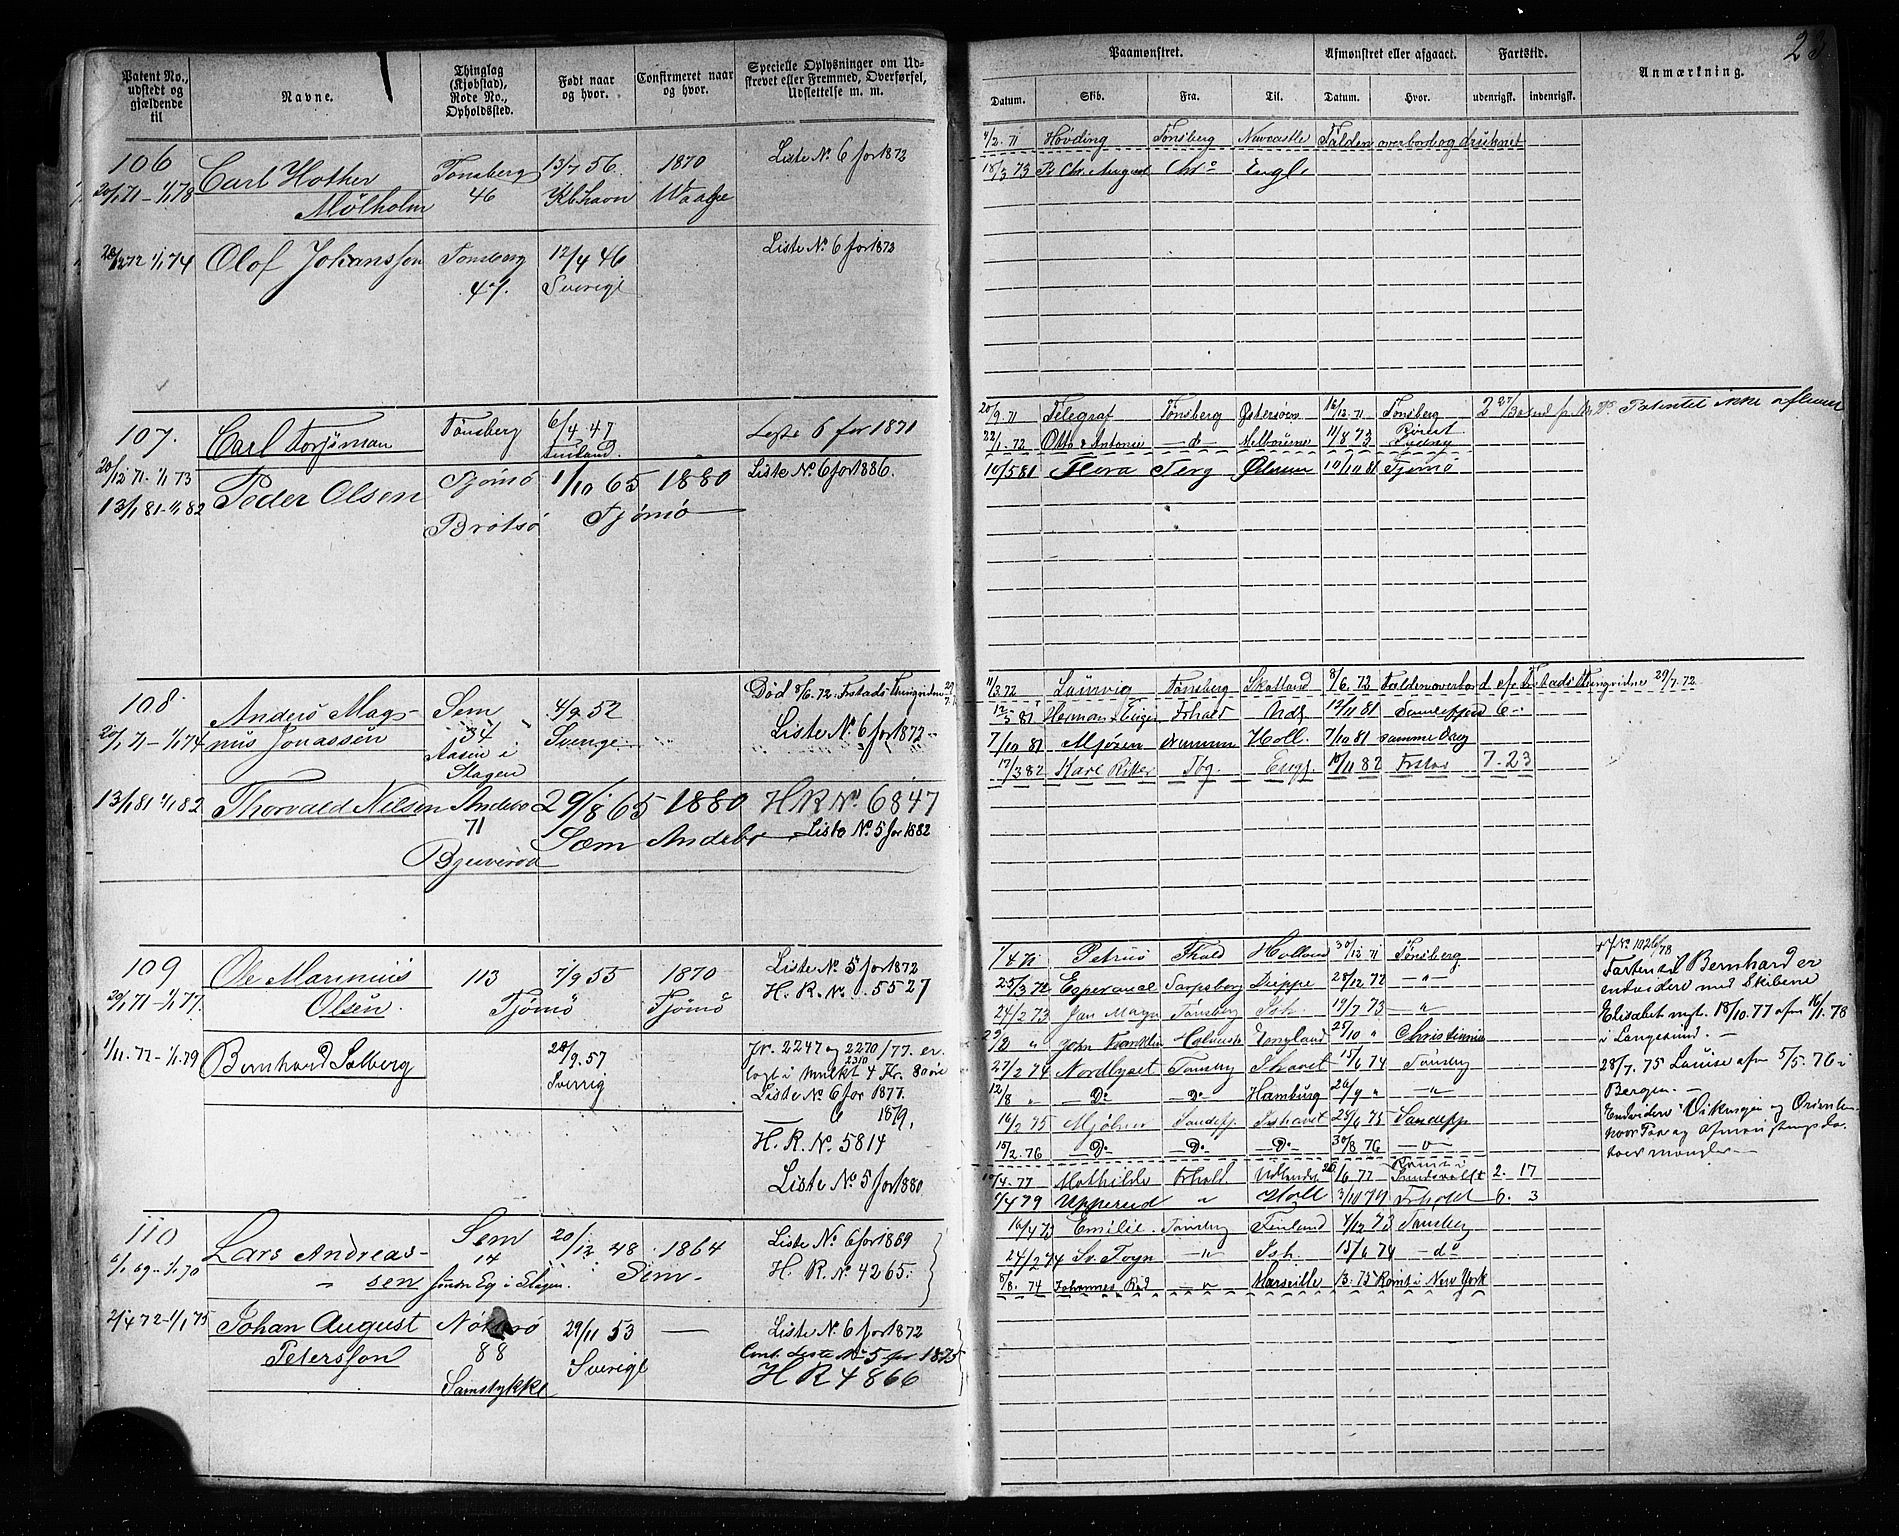 Patent No., udstedt og gjældende til
Navne.
Thinglag (Kjøbstad), Rode No., Opholdssted.
Født naar og hvor.
Confirmeret naar og hvor.
Specielle Oplysninger om Udstrevet eller Fremmed, Overførsel, Udslettelse m. m.
106
20/1 71 - 1/1 78
Carl Hother
Mølholm
Tønsberg
46
13/7 56
Kbhavn
1870
Waale
Liste No 6 for 1872
1/1 74
Olof Johansson
Tønsberg
47.
12/4 46
Sverige
Liste No 6 for 1873
107.
20/12 71 - 1/1 73
Carl Torsman
Tønsberg
6/4 47
Finland
Liste 6 for 1871
13/1 81 - 1/1 82
Peder Olsen
Tjømø
Brøtsø
1/10 65
1880
Tjømø
Liste No 6 for 1886.
108.
20/1 71 - 1/1 74
Anders Mag-
nus Jonassen
Sem
134
Aasen i
Slagen
4/9 52
Sverige
Død 8/6. 72.
Liste No 6 for 1872
13/1 81 1/1 82
Thorvald Nilsen
Andebo
71
29/8 65
Sæm
1880
Andebo
H R No 6847
Liste No 5 for 1882
109
20/1 71 - 1/1 77.
Ole Marinius
Olsen
113
7/9 55
Tjømø
1870
Tjømø
Liste No 5 for 1872
H. R. No. 5527
1/11. 77 - 1/1 79
Bernhard Solberg
28/9. 57
Sverrig
Jr. 2247 og 2270/77. er
2310
lagt i Mulkt 4 Kr. 80 øre
Liste No 6 for 1877.
1879.
H. R. No. 5814
Liste No 5 for 1880
110
1/1 70
Lars Andreas-
sen
Sem
14
20/12 48
Sem
1864
Liste No 6 for 1869
H. R. No 4265.
2/4 72 - 1/1 75
Johan August
Petersson
Nøtterø
88
Samstykke
29/11 53
Sverige
Liste No 6 for 1872
Cont. Liste No 5 for 1875
H R 4866
23
Paamønstret.
Afmønstret eller afgaaet.
Fartstid.
Anmærkning.
Datum.
Skib.
Fra.
Til.
Datum.
Hvor.
udenrigsk.
indenrigsk.
4/2. 71 Høvding Tønsberg Newcastle Falden overbord og druknet
18/3 73 Pr. Chr. August Chr.a Engl.
20/9. 71 Telegraf Tønsberg Østersøen 16/12. 71 Tønsberg Patentet ikke afleveret
22/1. 72 Otto & Antonie - d Melbourne 11/8 73 Rømt Sydney
10/5 81 Flora 10/10 81 Tjømø
11/3. 72 Laurvig Tønsberg Skotland 8/6. 72 Falden overbord 29/7. 72
12/5 81 Frhald 12/11 81
7/10. 81 Mjøsen Drammen Holl. 7/10 81 samme
17/3 82 Karl Ritter Tbg. Engl. 82 7. 23
1/4 71 Petrus Fhald Holland 30/12 71 Tønsberg
25/3. 72 Esperance Sarpsborg Dieppe 28/12 72 - " -
24/2 73 Jan Mayn Tønsberg Ish. 19/7 73 - " -
29/2 " John Franklin England 25/10 " Christiania
27/2 74 Nordlyset Tønsberg Ishavet 15/6 74 Tønsberg
12/8 " - Do - - Do - Hamburg 26/9 " - " -
16/2 75 Mjølner Sandefj. Ishavet 25/6 75 Sandefj.
15/2. 76 - Do - - Do - - Do - 30/8 76 - " -
77 Mathilde Frhald 77 Rømt i Sundsvall 2. 17
1/4 79 Upperud " Holl 3/10 79 Frhald 6. 3
No 102 6/1 78
Farten til Bernhard er
endvidere med Skibene
Elisabet mgt. 18/10. 77 afm 16/1. 78
i Langesund. -
28/7. 75 Louise afm 5/5. 76 i
Bergen. -
Endvidere Vikingen og Orienten
hvor Paa og Afmønstringsda-
toer mangler -
16/4 73 Emilie Tønsberg Finland 4/12 73 Tønsberg
24/2 74 Sv. Foyn - " - Ish. 15/6 74 - do
8/8. 74 Johannes Rød - " - Marseille 13. 75 Rømt i New York